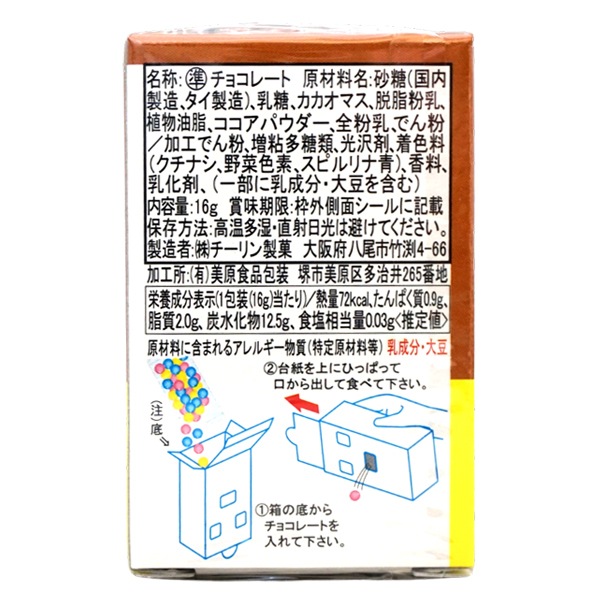 名称:㊝チョコレート 原材料名:砂糖(国内
製造、タイ製造)、乳糖、カカオマス、脱脂粉乳、
植物油脂、ココアパウダー、全粉乳、でん粉
/加工でん粉、増粘多糖類、光沢剤、着色料
(クチナシ、野菜色素、スピルリナ青)、香料、
乳化剤、(一部に乳成分・大豆を含む)
内容量:16g 賞味期限:枠外側面シールに記載
保存方法:高温多湿・直射日光は避けてください。
製造者:㈱チーリン製菓 大阪府八尾市竹渕4-66
加工所:(有)美原食品包装 堺市美原区多治井265番地
栄養成分表示(1包装(16g)当たり)/熱量72kcal、たんぱく質0.9g、
脂質2.0g、炭水化物12.5g、食塩相当量0.03g<推定値>
原材料に含まれるアレルギー物質(特定原材料等) 乳成分・大豆
②台紙を上にひっぱって
口から出して食べて下さい。
(注)底
①箱の底から
チョコレートを
入れて下さい。